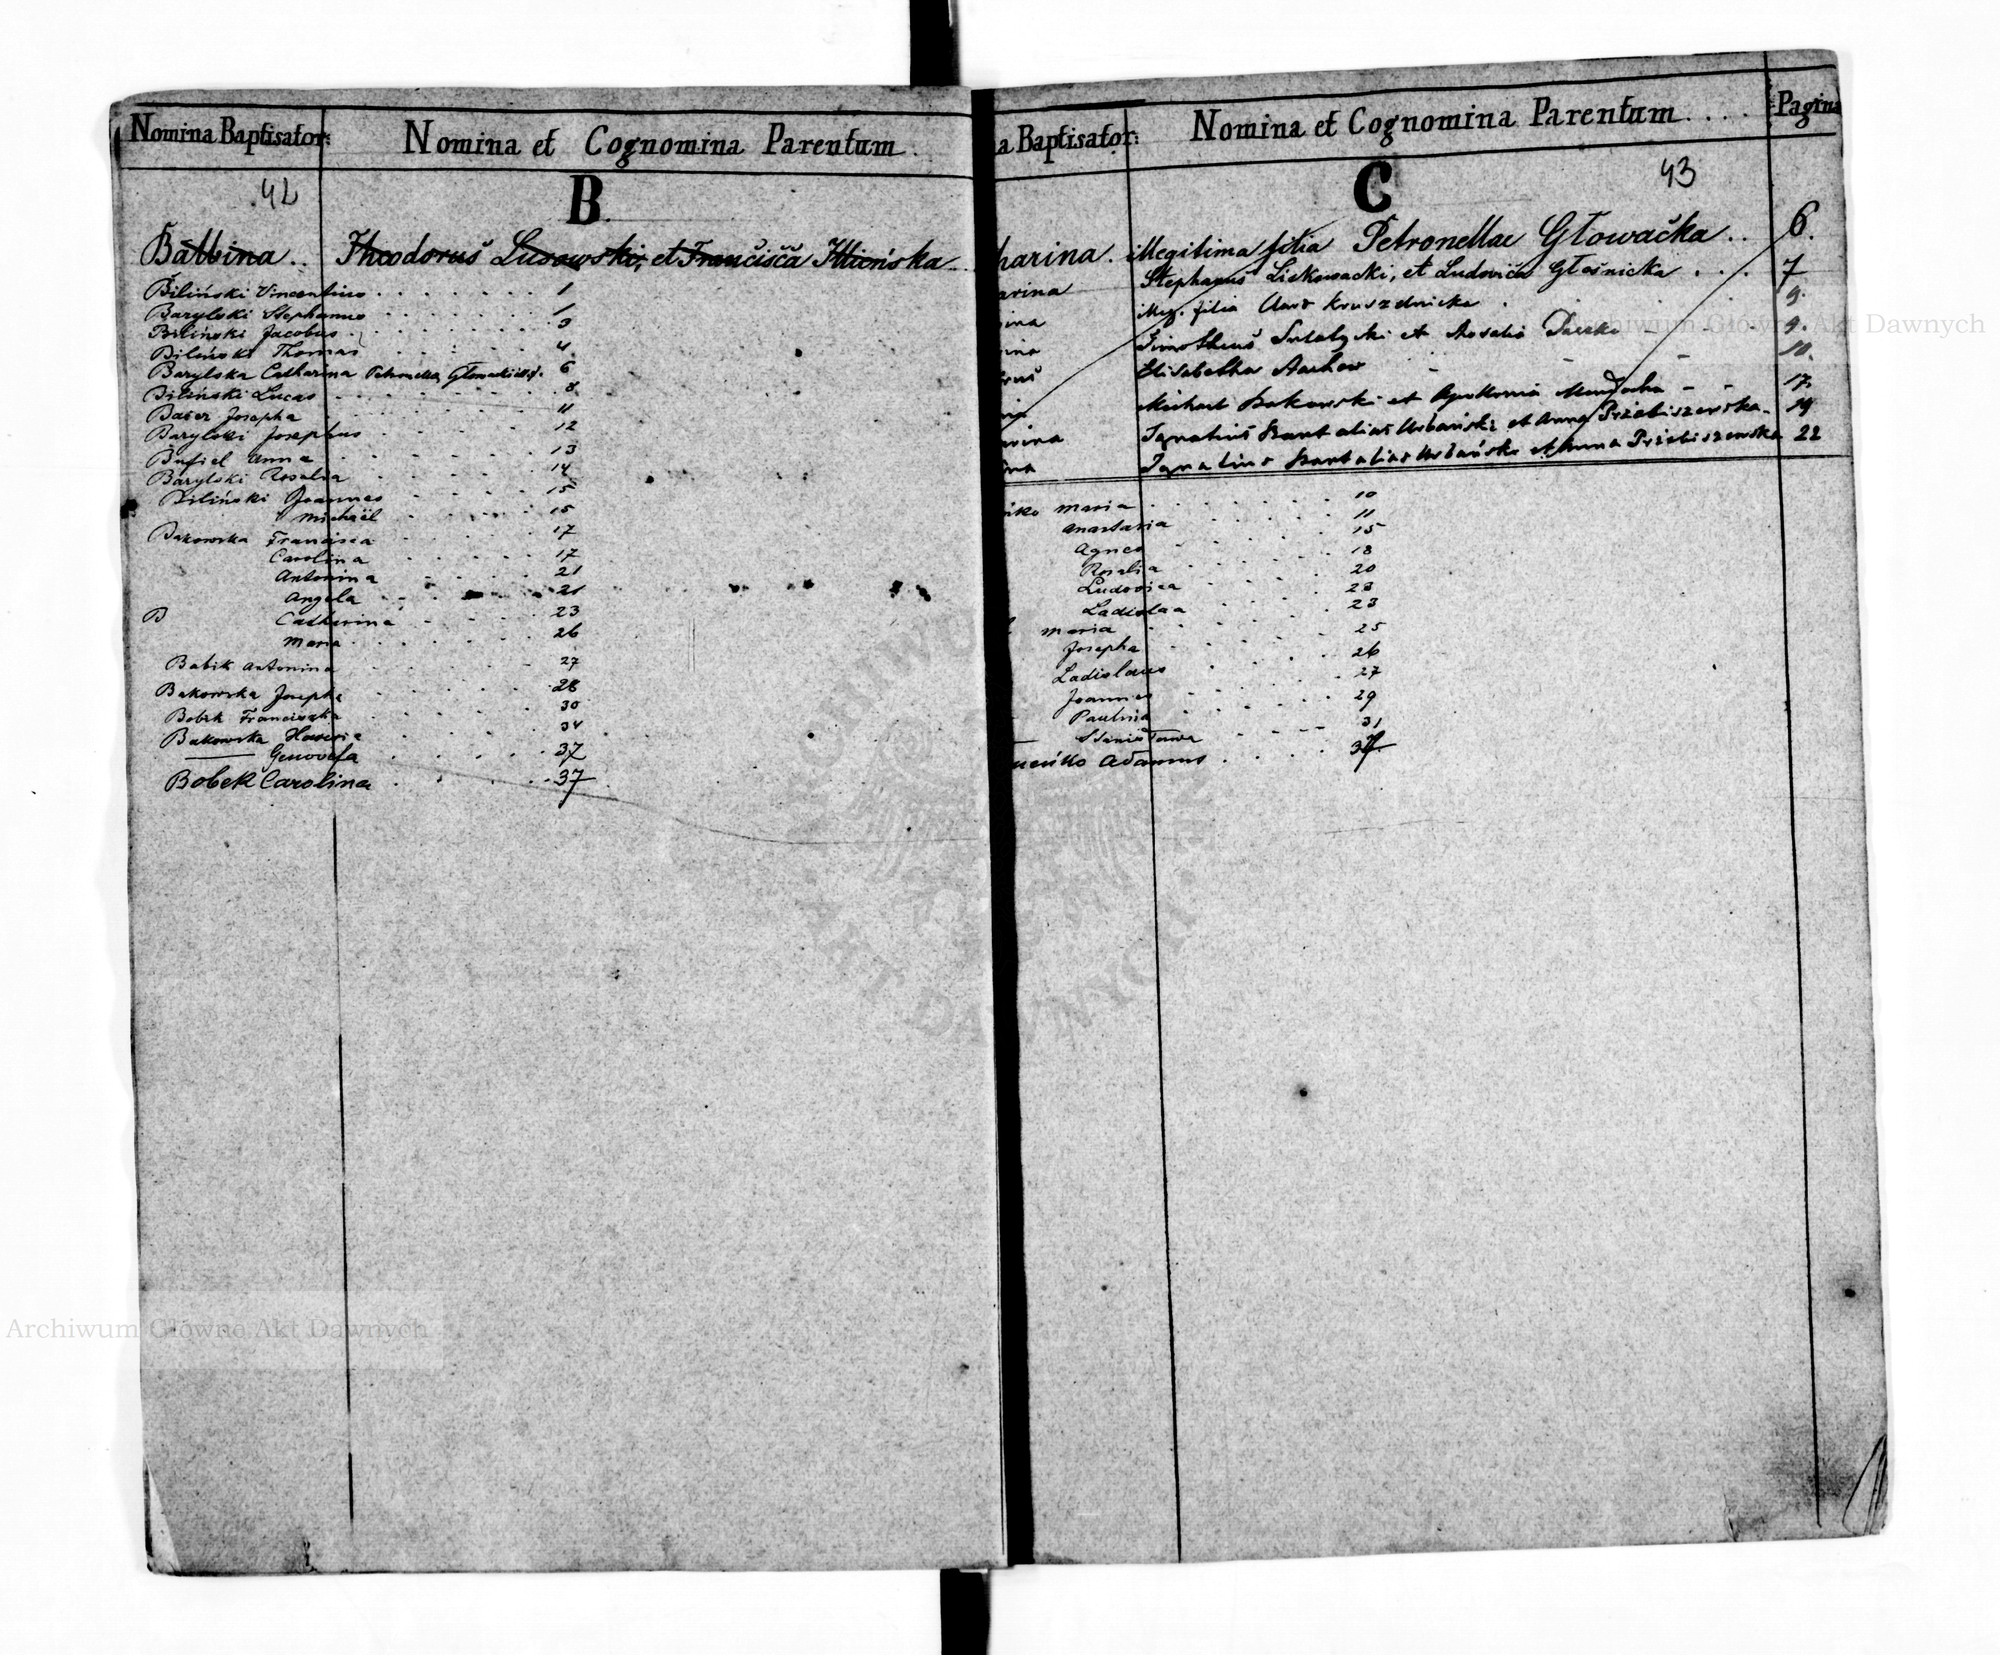 Nomina Baptisator:
Nomina et Cognomina Parentum.
42
B
Balbina.. Theodoruš Ludowski, et Frančišča Ilieńska
Biliński Vincentius 1
Barylski Stephanus 1
Biliński Jacobus 3
Biliński Thomas 4
Barylska Catharina Petronella Głowacki 6
Biliński Lucas 8
Bauer Josepha 11
Barylski Josephus 12
Anna 13
Barylski Rosalia 14
Biliński Joannes 15
Michaël 15
Bakowska Francisca 17
Carolina 17
Antonina 21
Angela 21
B Catharina 23
Maria 26
Babik Antonina 27
Bakowska Josepha 28
Bobek Franciszka 30
Bakowska 34
Genovefa 37
Bobek Carolina 37
a Baptisator:
Nomina et Cognomina Parentum....
Pagina
43
C
harina. Illegitima filia Petronellae Głowačka.. 6.
arina Stephanuš et Ludoviča Głośnicka 7
ina filia 9.
rina Timotheuš et Rosalia 9.
Elisabetha 10.
Michael Bakowski et Apollonia 17.
arina Ignatiuš alias Urbański et Anna Przebiszewska 19
ina Ignatius alias Urbański et Anna Przebiszewska 22
Maria 10
Anastasia 11
Agnes 15
Rosalia 18
Ludovica 20
Ladislaa 23
Maria 23
Josepha 25
Ladislaus 26
Joannes 27
Paulina 29
Stanisława 31
Adamus 37
Archiwum Główne Akt Dawnych
Archiwum Główne Akt Dawnych